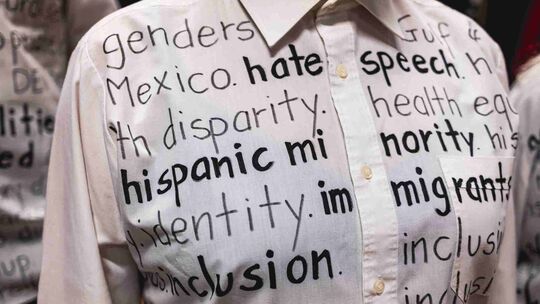 genders Gulf
Mexico. hate speech. h
th disparity. health equ
hispanic mi nority. his
identity. im migrants
inclusion. inclus
inclusi